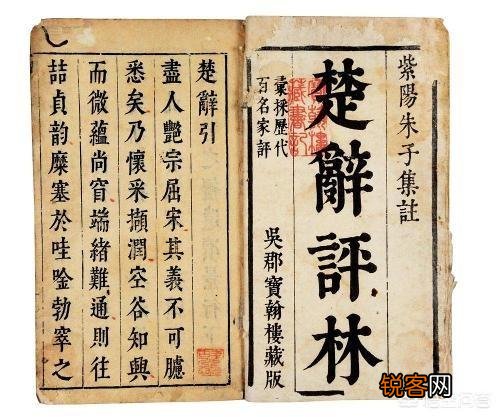 紫陽朱子集註
楚辭評林
彙採歷代
百名家評
吳郡寶翰樓藏版
楚辭引
盡人艷宗屈宋其義不可臆
悉矣乃懷采擷潤空谷知興
而微蘊尚窅端緒難通則往
喆貞韵糜塞於哇唫勃窣之
锐客网